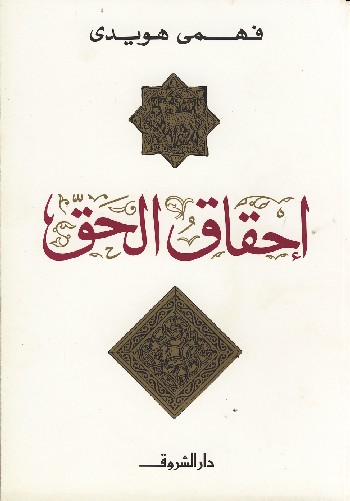 فهمى هويدى
إحقاق الحق
دار الشروق